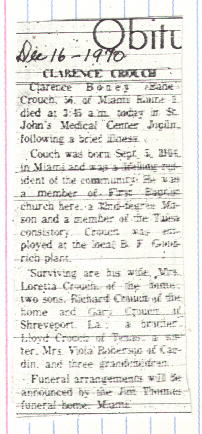 Obitu
Dec 16 - 1970
CLARENCE CROUCH
Clarence Boney
Crouch, 56, of Miami Route
died at 3:45 a.m. today in St.
John's Medical Center Joplin,
following a brief illness.
Couch was born Sept. 5,
in Miami and was a lifelong res-
ident of the community. He was
a member of First Baptist
church here, a 32nd-degree Ma-
son and a member of the Tulsa
consistory. Crouch was em-
ployed at the local B. F. Good-
rich plant.
Surviving are his wife, Mrs.
Loretta Crouch, of the home;
two sons, Richard Crouch of the
home and Gary Crouch of
Shreveport, La.; a brother,
Lloyd Crouch of Texas; a sis-
ter, Mrs. Viola Roberson of Car-
din, and three grandchildren.
Funeral arrangements will be
announced by the Jim Thomas
funeral home, Miami.